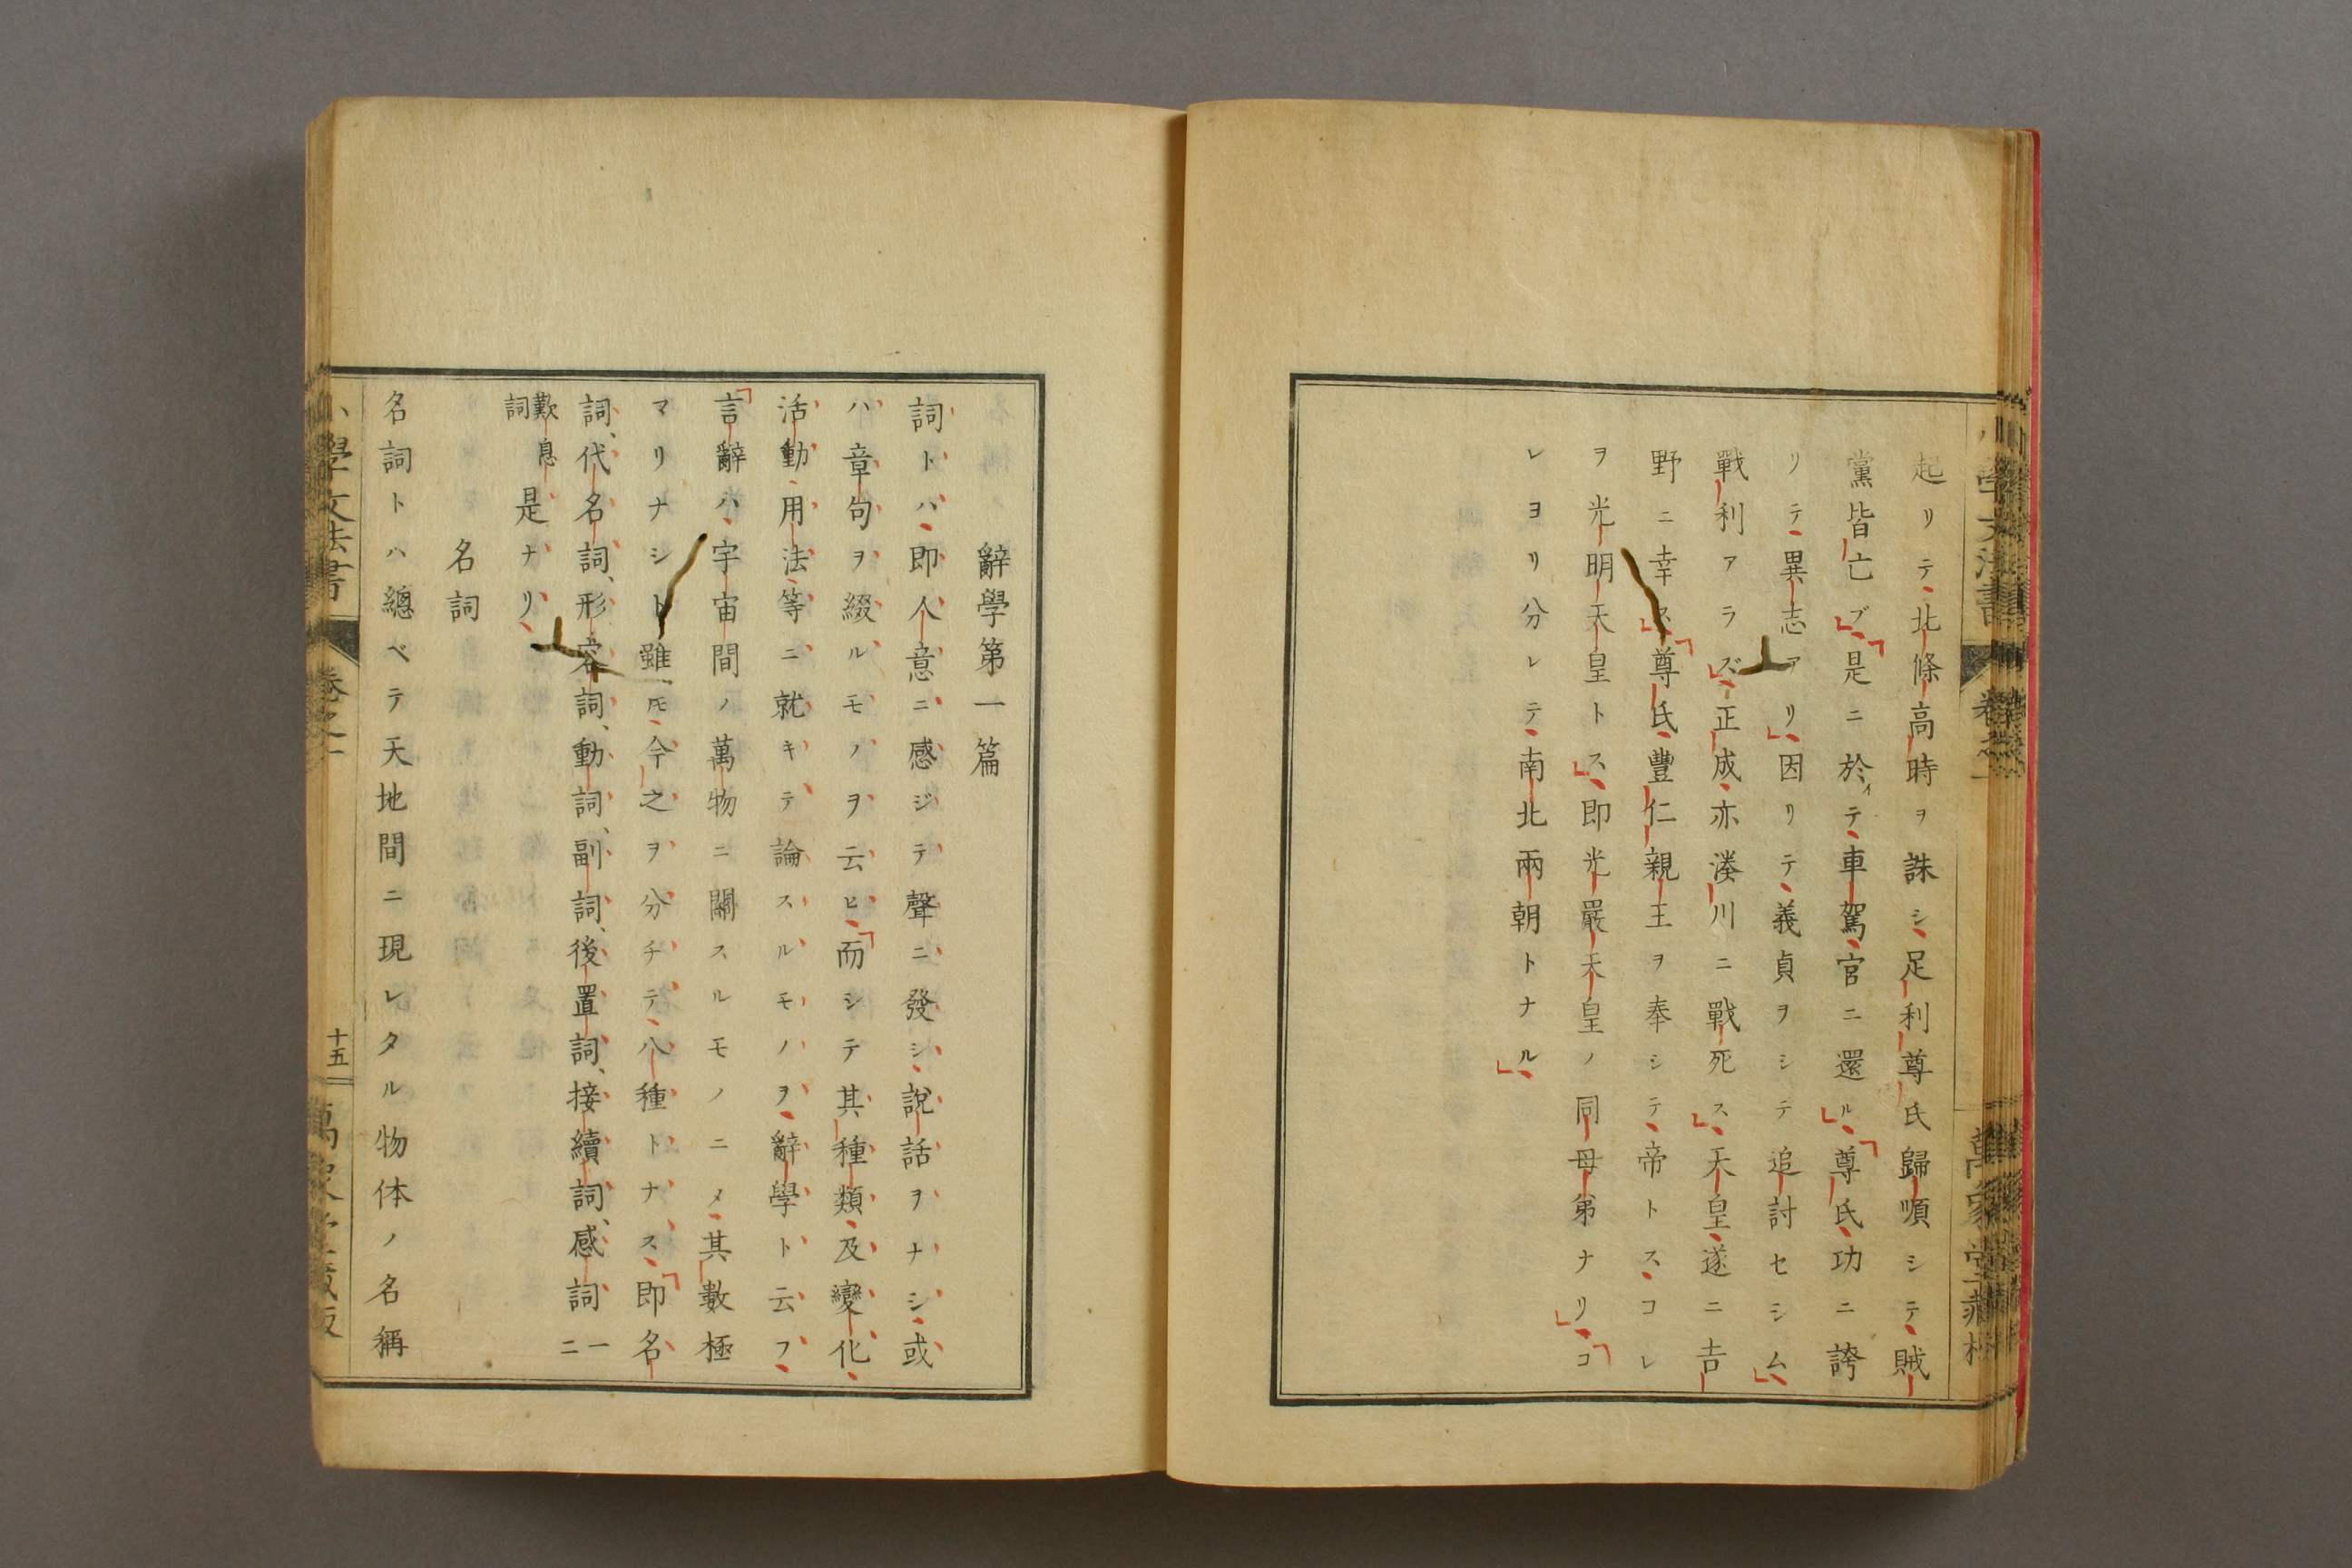 起リテ、北條高時ヲ誅シ、足利尊氏歸順シテ、賊
黨皆亡ブ、是ニ於イテ、車駕、官ニ還ル、尊氏、功ニ誇
リテ、異志アリ、因リテ、義貞ヲシテ追討セシム、
戰利アラズ、正成、亦湊川ニ戰死ス、天皇、遂ニ吉
野ニ幸ス、尊氏、豐仁親王ヲ奉シテ、帝トス、コレ
ヲ光明天皇トス、即光嚴天皇ノ同母弟ナリ、コ
レヨリ分レテ、南北兩朝トナル、
辭學第一篇
詞トハ、即人意ニ感ジテ聲ニ發シ、說話ヲナシ、或
ハ章句ヲ綴ルモノヲ云ヒ、而シテ其種類、及變化、
活動、用法、等ニ就キテ論スルモノヲ、辭學ト云フ、
言辭ハ、宇宙間ノ萬物ニ關スルモノニメ、其數極
マリナシト雖𪜈、今之ヲ分チテ、八種トナス、即名
詞、代名詞、形容詞、動詞、副詞、後置詞、接續詞、感詞一ニ
歎息詞是ナリ、
名詞
名詞トハ總ベテ天地間ニ現レタル物体ノ名稱
小學文法書
卷之一
十五